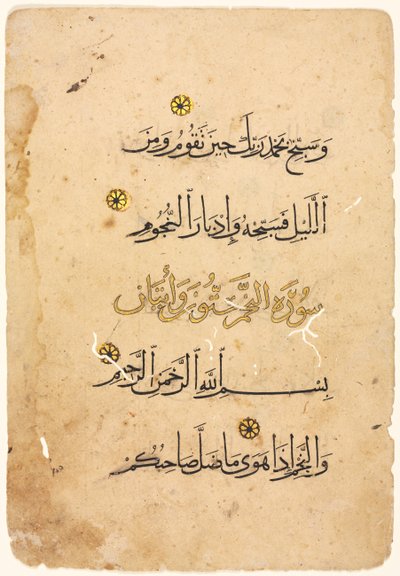 وَسَبِّحْ بِحَمْدِ رَبِّكَ حِينَ تَقُومُ وَمِنَ
ٱللَّيْلِ فَسَبِّحْهُ وَإِدْبَارَ ٱلنُّجُومِ
سُورَةُ النَّجْمِ سِتُّونَ وَٱثْنَانِ
بِسْمِ ٱللَّهِ ٱلرَّحْمَٰنِ ٱلرَّحِيمِ
وَٱلنَّجْمِ إِذَا هَوَى مَا ضَلَّ صَاحِبُكُمْ